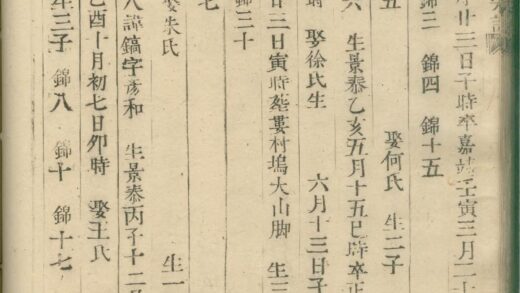 廿三日子時卒嘉靖壬寅三月二十
錦三 錦四 錦十五
五 娶何氏 生二子
六 生景泰乙亥五月十五巳時卒正
時 娶徐氏生 六月十三日子
廿三日寅時葬婁村塢大山脚 生三
錦三十
七
娶朱氏 生一
八諱鎬字彥和 生景泰丙子十二月
乙酉十月初七日卯時 娶王氏
生三子 錦八 錦十 錦十七